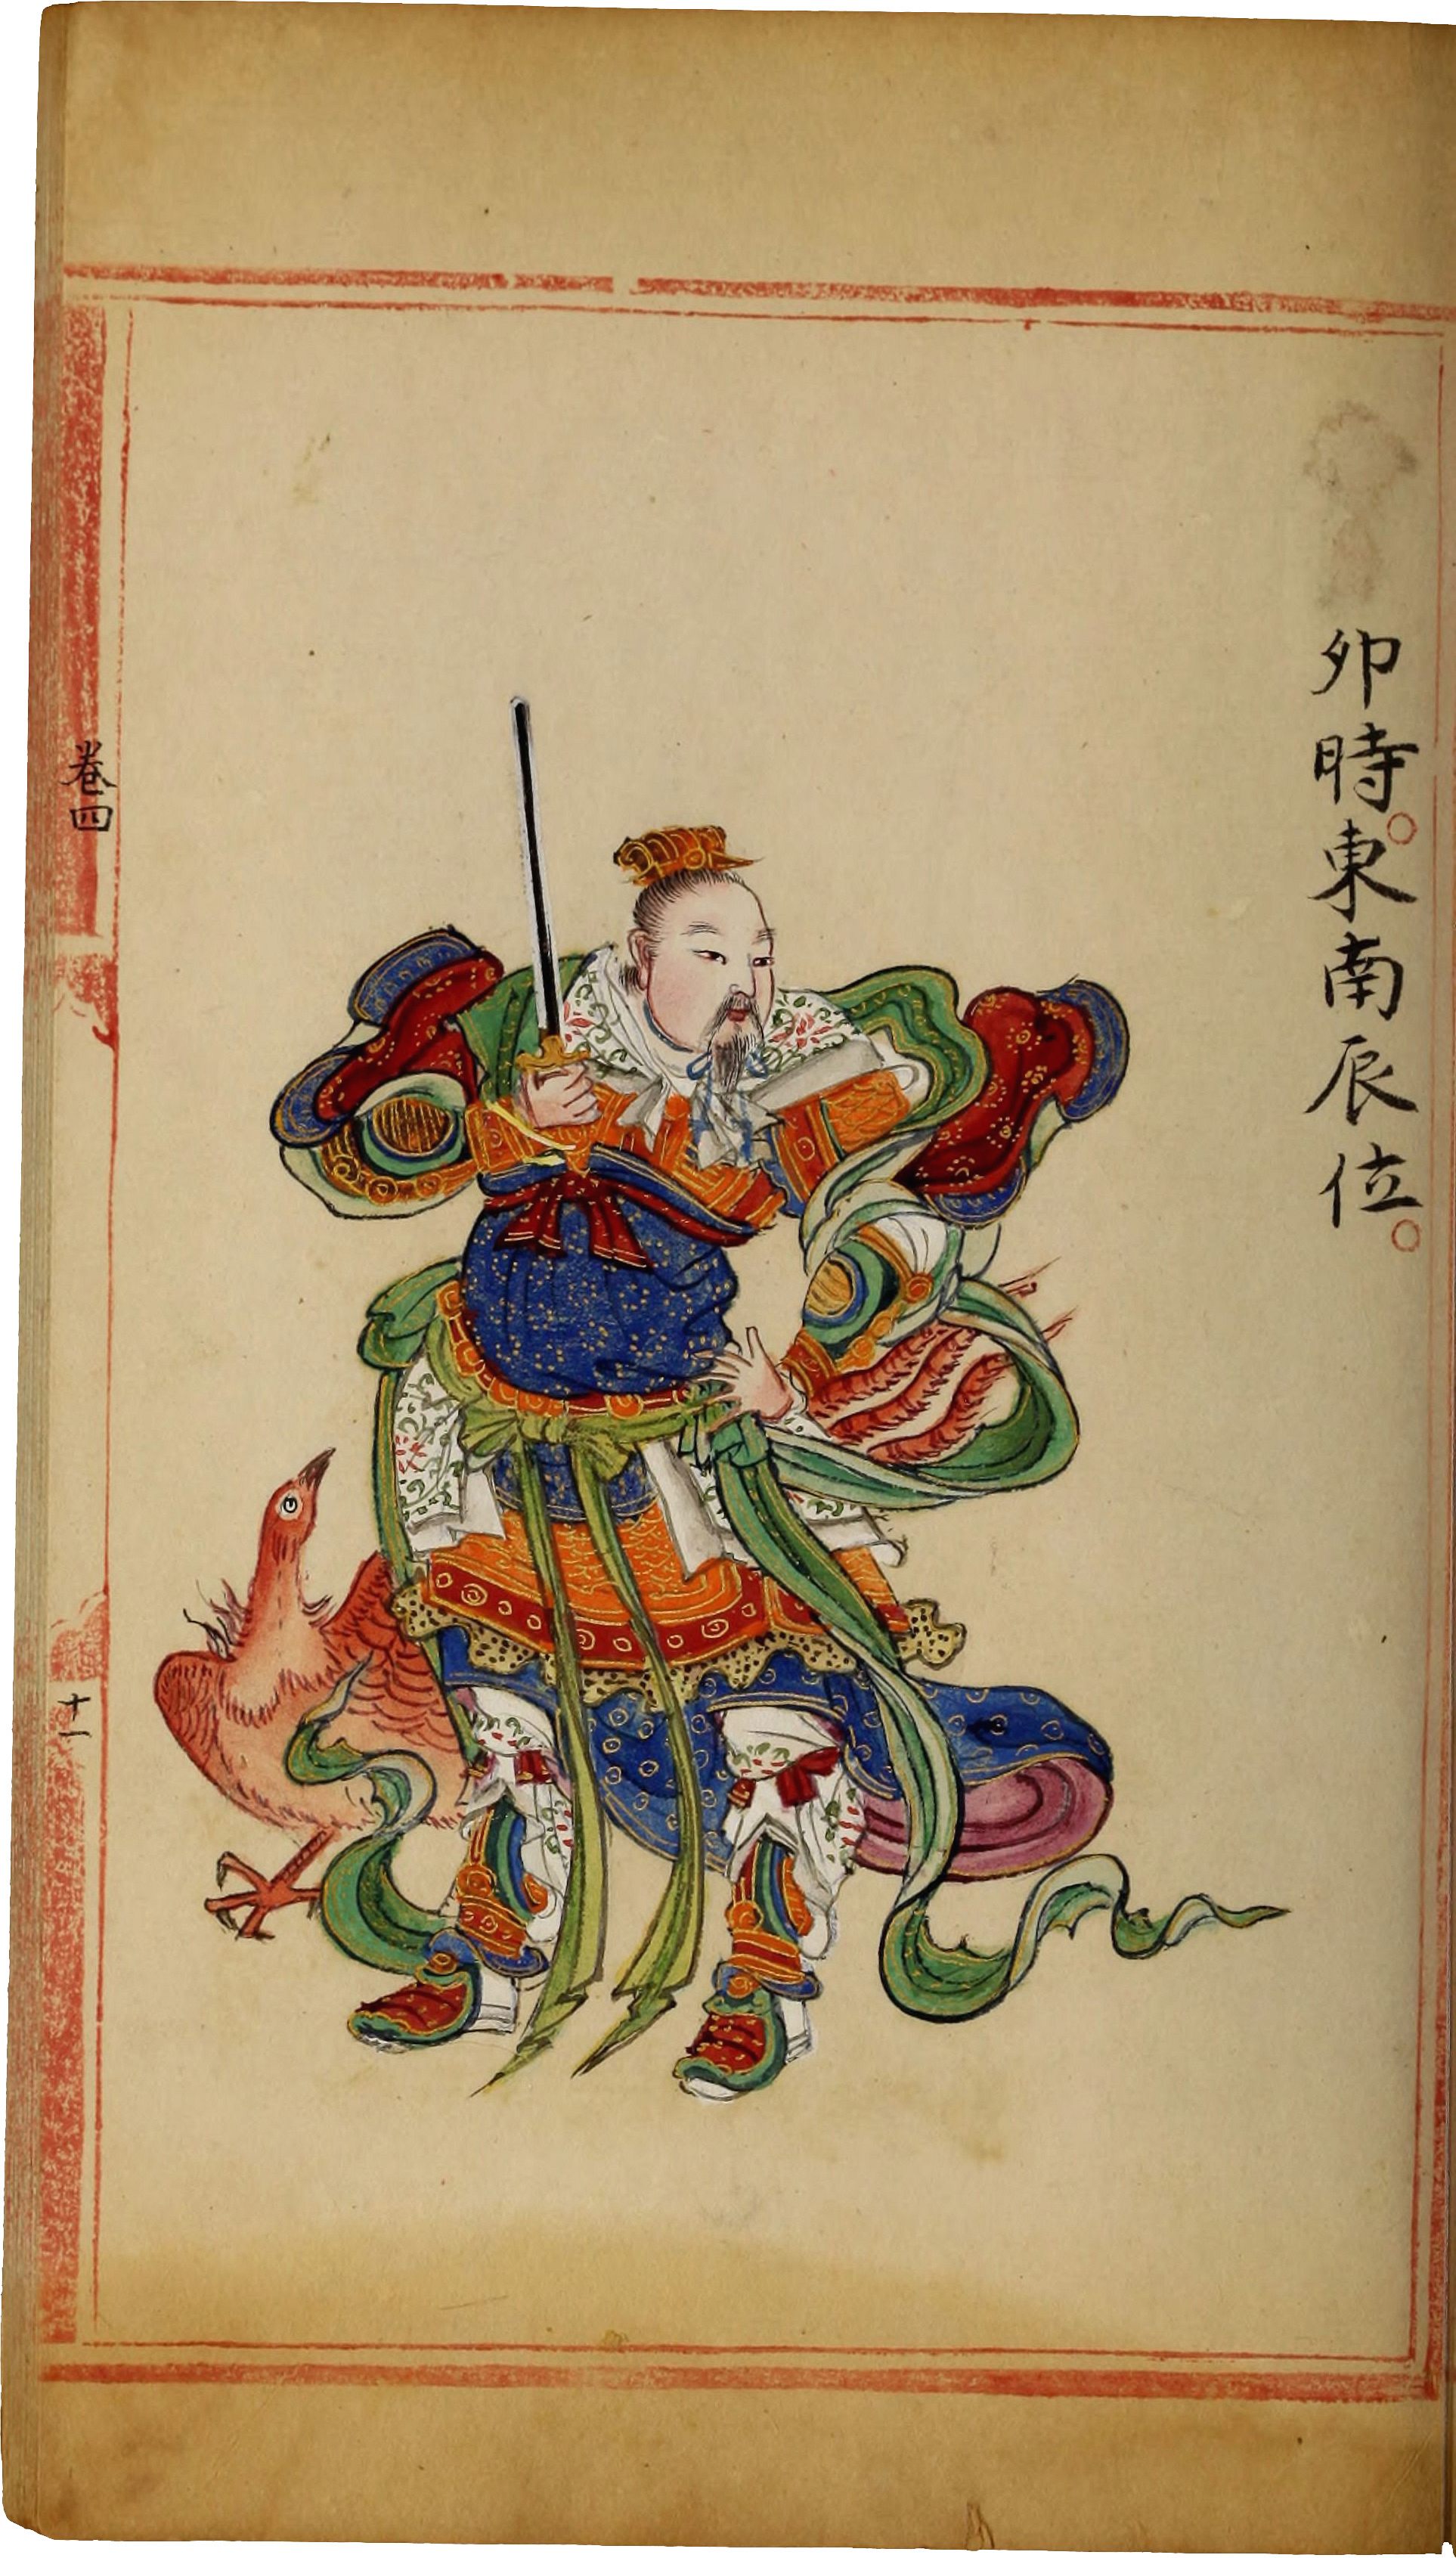 卯時東南辰位
卷四
十一